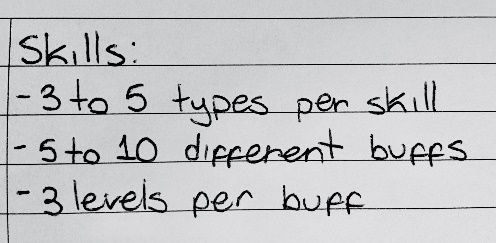 Skills:
- 3 to 5 types per skill
- 5 to 10 different buffs
- 3 levels per buff